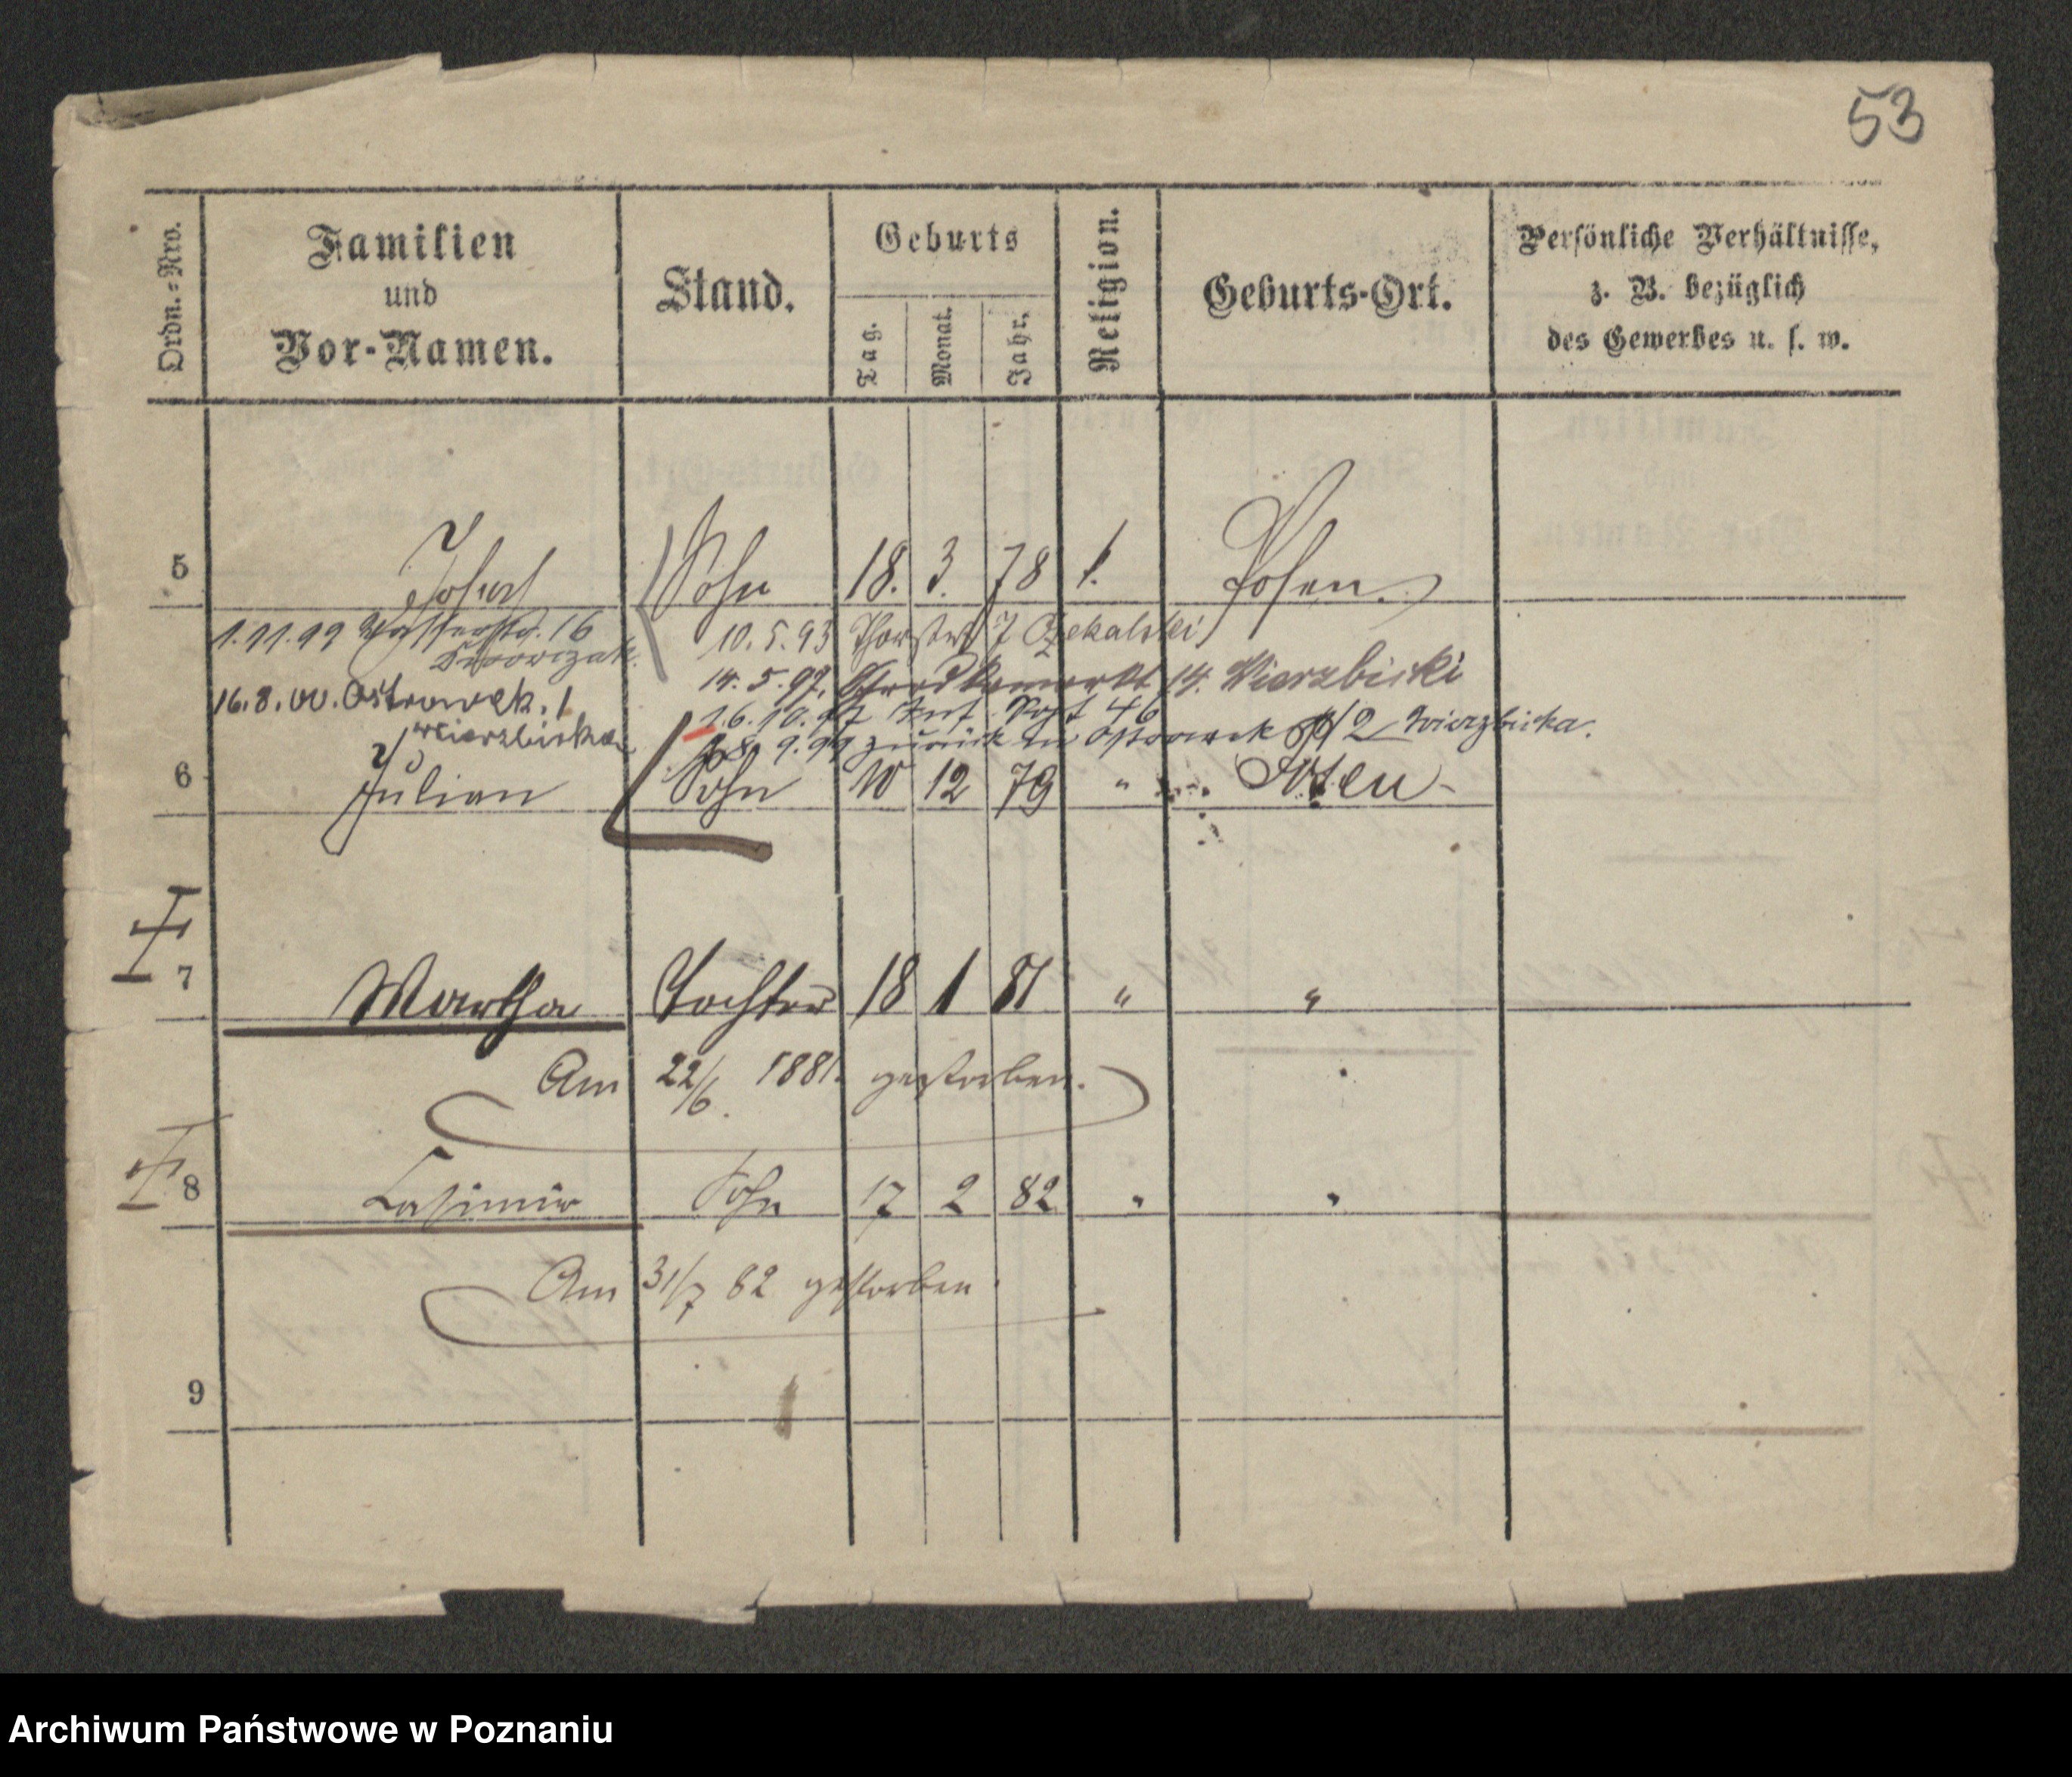 53
Ordn.-Nro.
Familien
und
Vor-Namen.
Stand.
Geburts
Tag.
Monat.
Jahr.
Religion.
Geburts-Ort.
Persönliche Verhältnisse,
z. B. bezüglich
des Gewerbes u. s. w.
5 Josef Sohn 18. 3. 78 Posen.
1.11.99 16
10.5.93 7 Czekalski
14.5.97. 14. Wierzbicki
16.8.00. Ostrowek. 1
46
Wierzbicka
9.99 zurück Ostrowek 12 Wierzbicka.
6 Julian Sohn 10 12 79 " Posen
7 Martha Tochter 18 1 81 " "
Am 22/6. 1881. gestorben.
8 Casimir Sohn 17 2 82 " "
Am 31/7 82 gestorben.
9
Archiwum Państwowe w Poznaniu